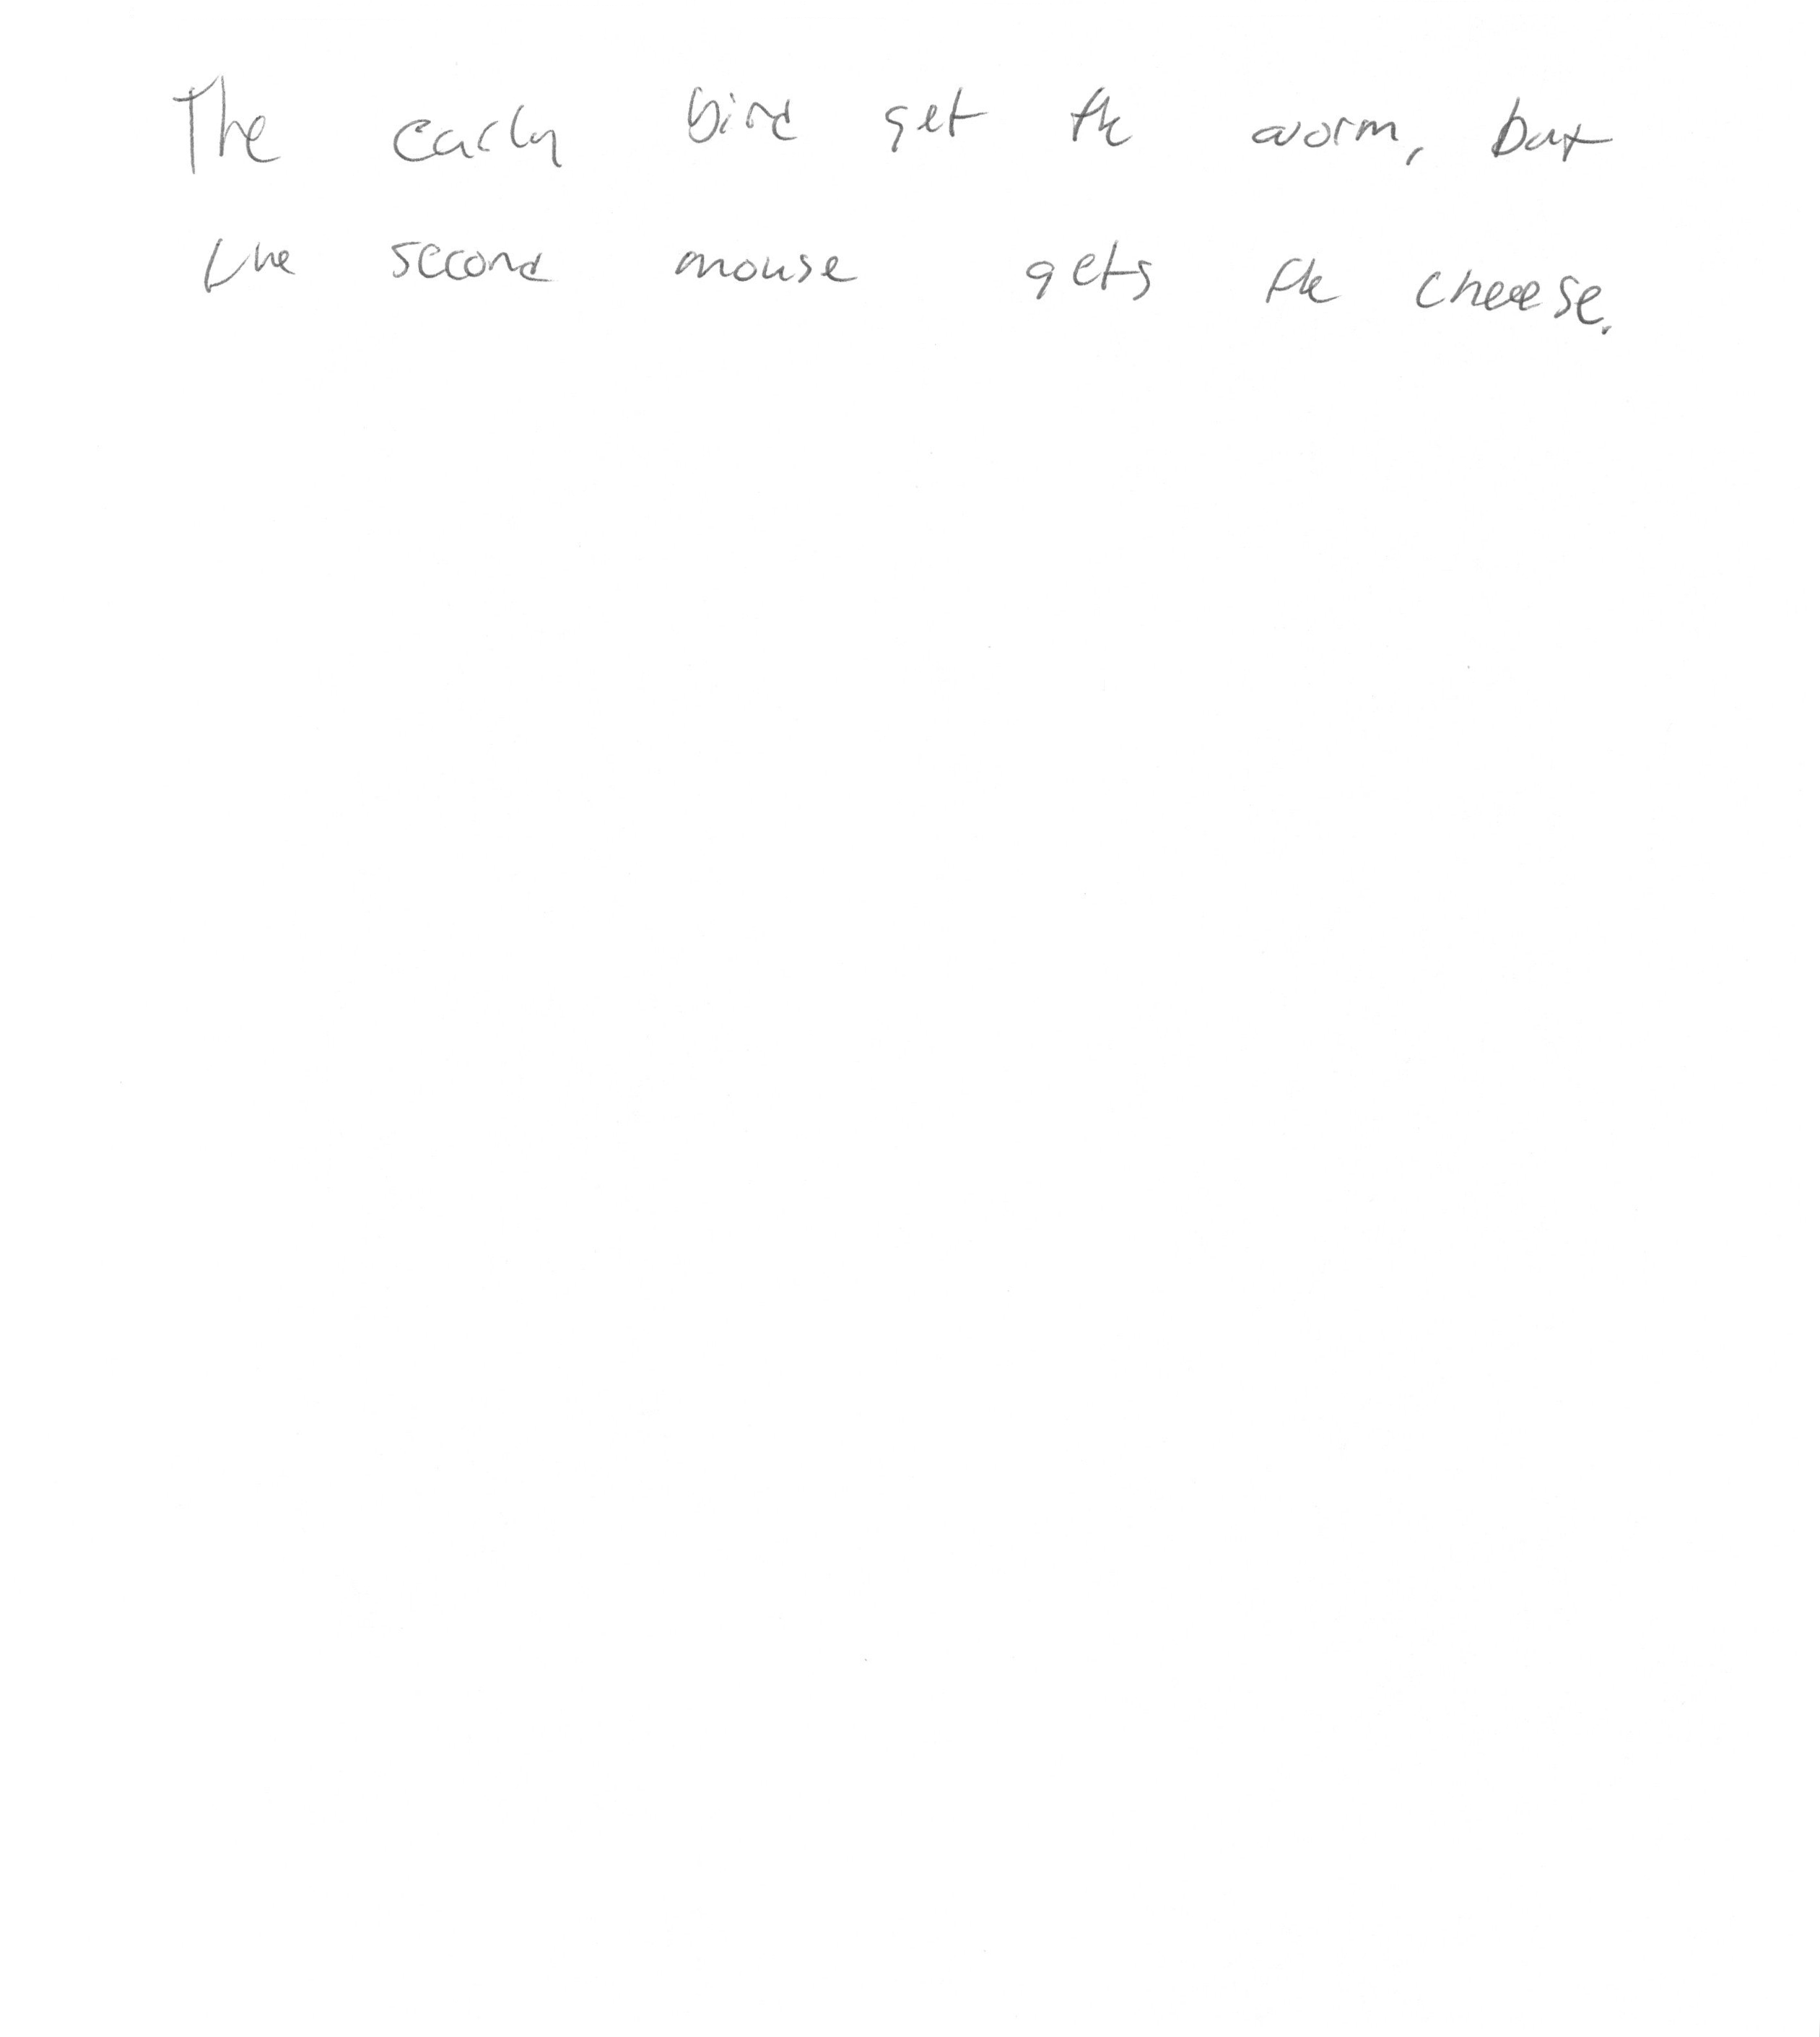 The early bird get the worm, but
the second mouse gets the cheese.